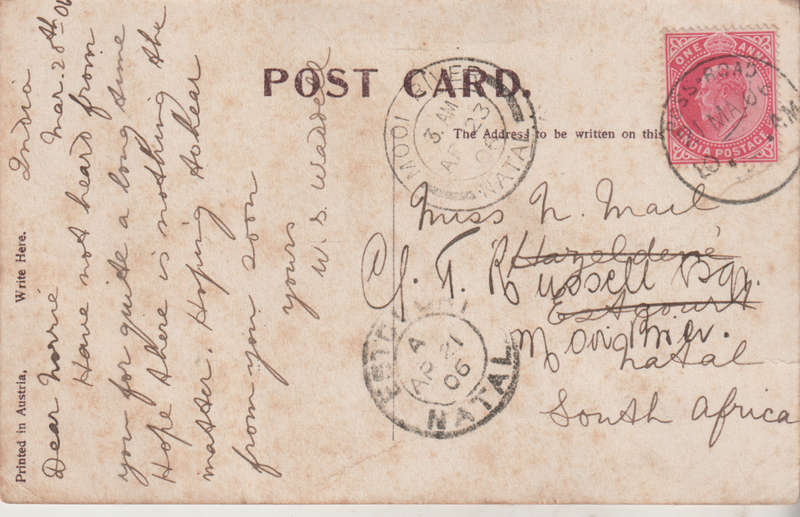 POST CARD.
The Address to be written on this
Printed in Austria. Write Here.
India
Mar. 20th 06
Dear Norrie
Have not heard from
you for quite a long time
Hope there is nothing the
matter. Hoping to hear
from you soon
yours
W. S. Waddell
MOOI RIVER
3. AM
AP 23
06
NATAL
ONE ANNA
INDIA POSTAGE
Miss N. Mail
Hazeldene
C/. T. Russell Esqr.
Estcourt
Mooi River.
Natal
South Africa
ESTCOURT
A
AP 21
06
NATAL